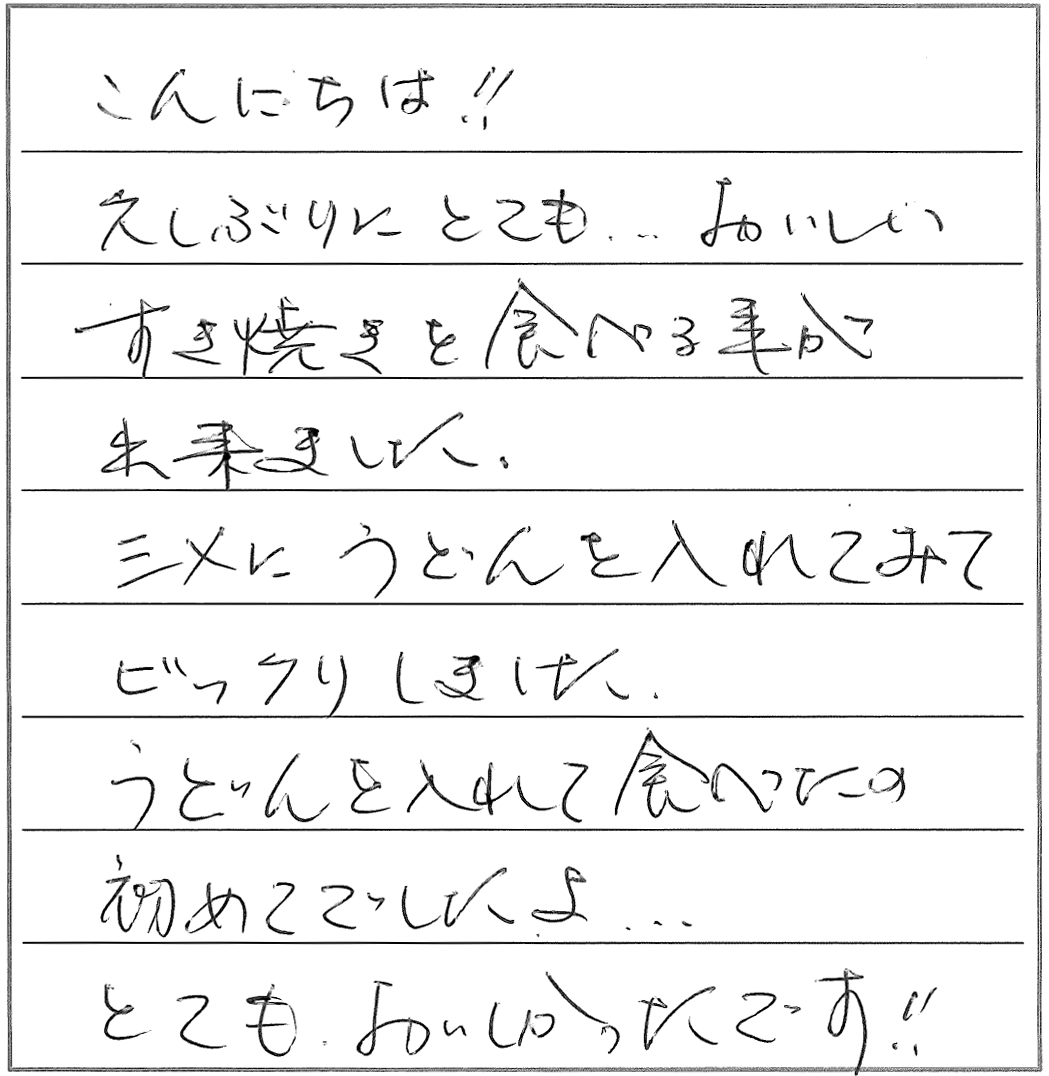 こんにちは!!
久しぶりにとても... おいしい
すき焼きを食べる事が
出来ました。
〆にうどんを入れてみて
ビックリしました。
うどんを入れて食べたの
初めてでしたよ...
とても.おいしかったです!!